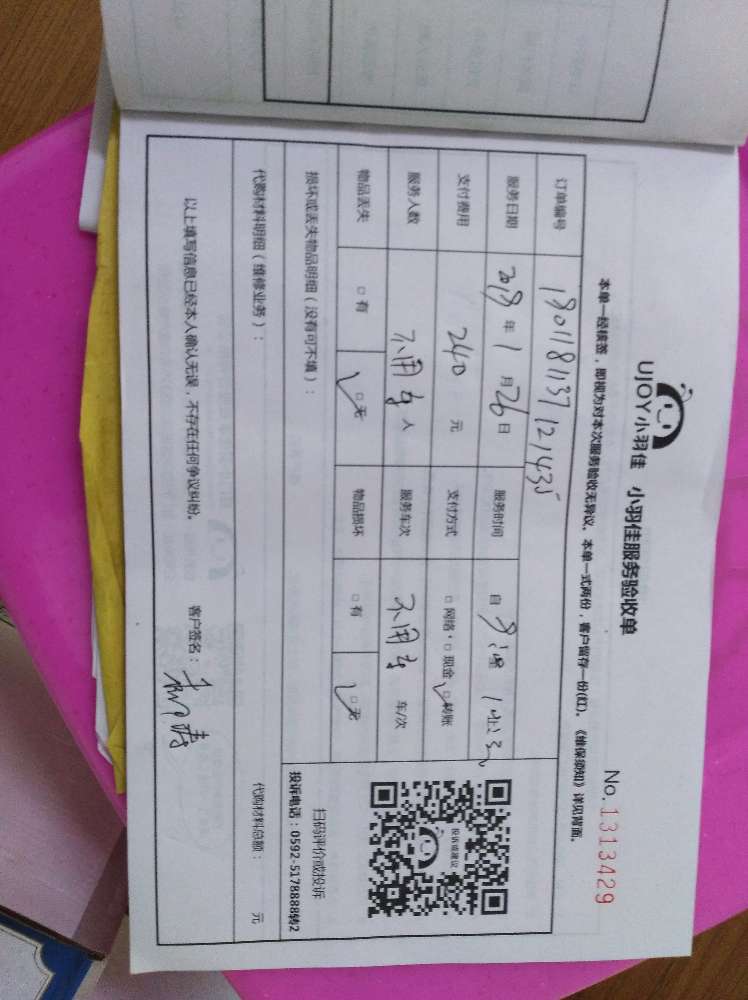 UJOY小羽佳 小羽佳服务验收单
No.1313429
本单一经核签，即视为对本次服务验收无异议。本单一式两份，客户留存一份(红)。《维保须知》详见背面。
订单编号 1801181137121435
服务日期 2018年1月26日 服务时间 自
支付费用 240元 支付方式 □网络·□现金 □转账
服务人数 不用车人 服务车次 不用车 车/次
物品丢失 □有 □无 物品损坏 □有 □无
投诉或建议
扫码评价或投诉
投诉电话：0592-5178888转2
损坏或丢失物品明细（没有可不填）：
代购材料明细（维修业务）： 代购材料总额： 元
以上填写信息已经本人确认无误，不存在任何争议纠纷。 客户签名：